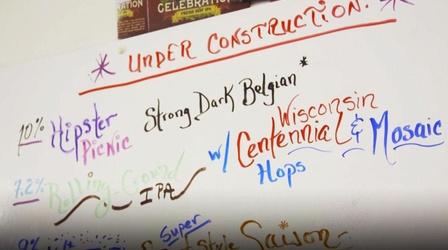 CELEBRATION
* UNDER CONSTRUCTION. *
10% Hipster Picnic Strong Dark Belgian*
7.2% Rolling Ground IPA w/ Wisconsin Centennial & Mosaic Hops
9% Super Saison